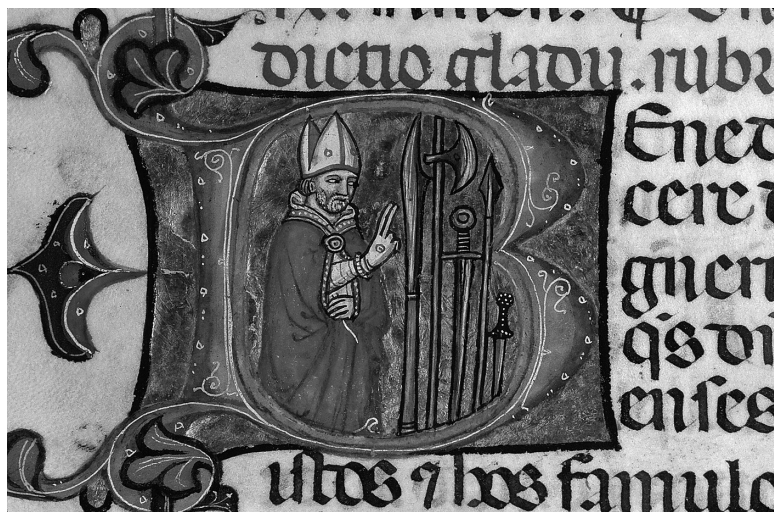 dictio gladii. rubr
Ened
cere d
gneri
q̃s di
enses
istos ⁊ hos famulo